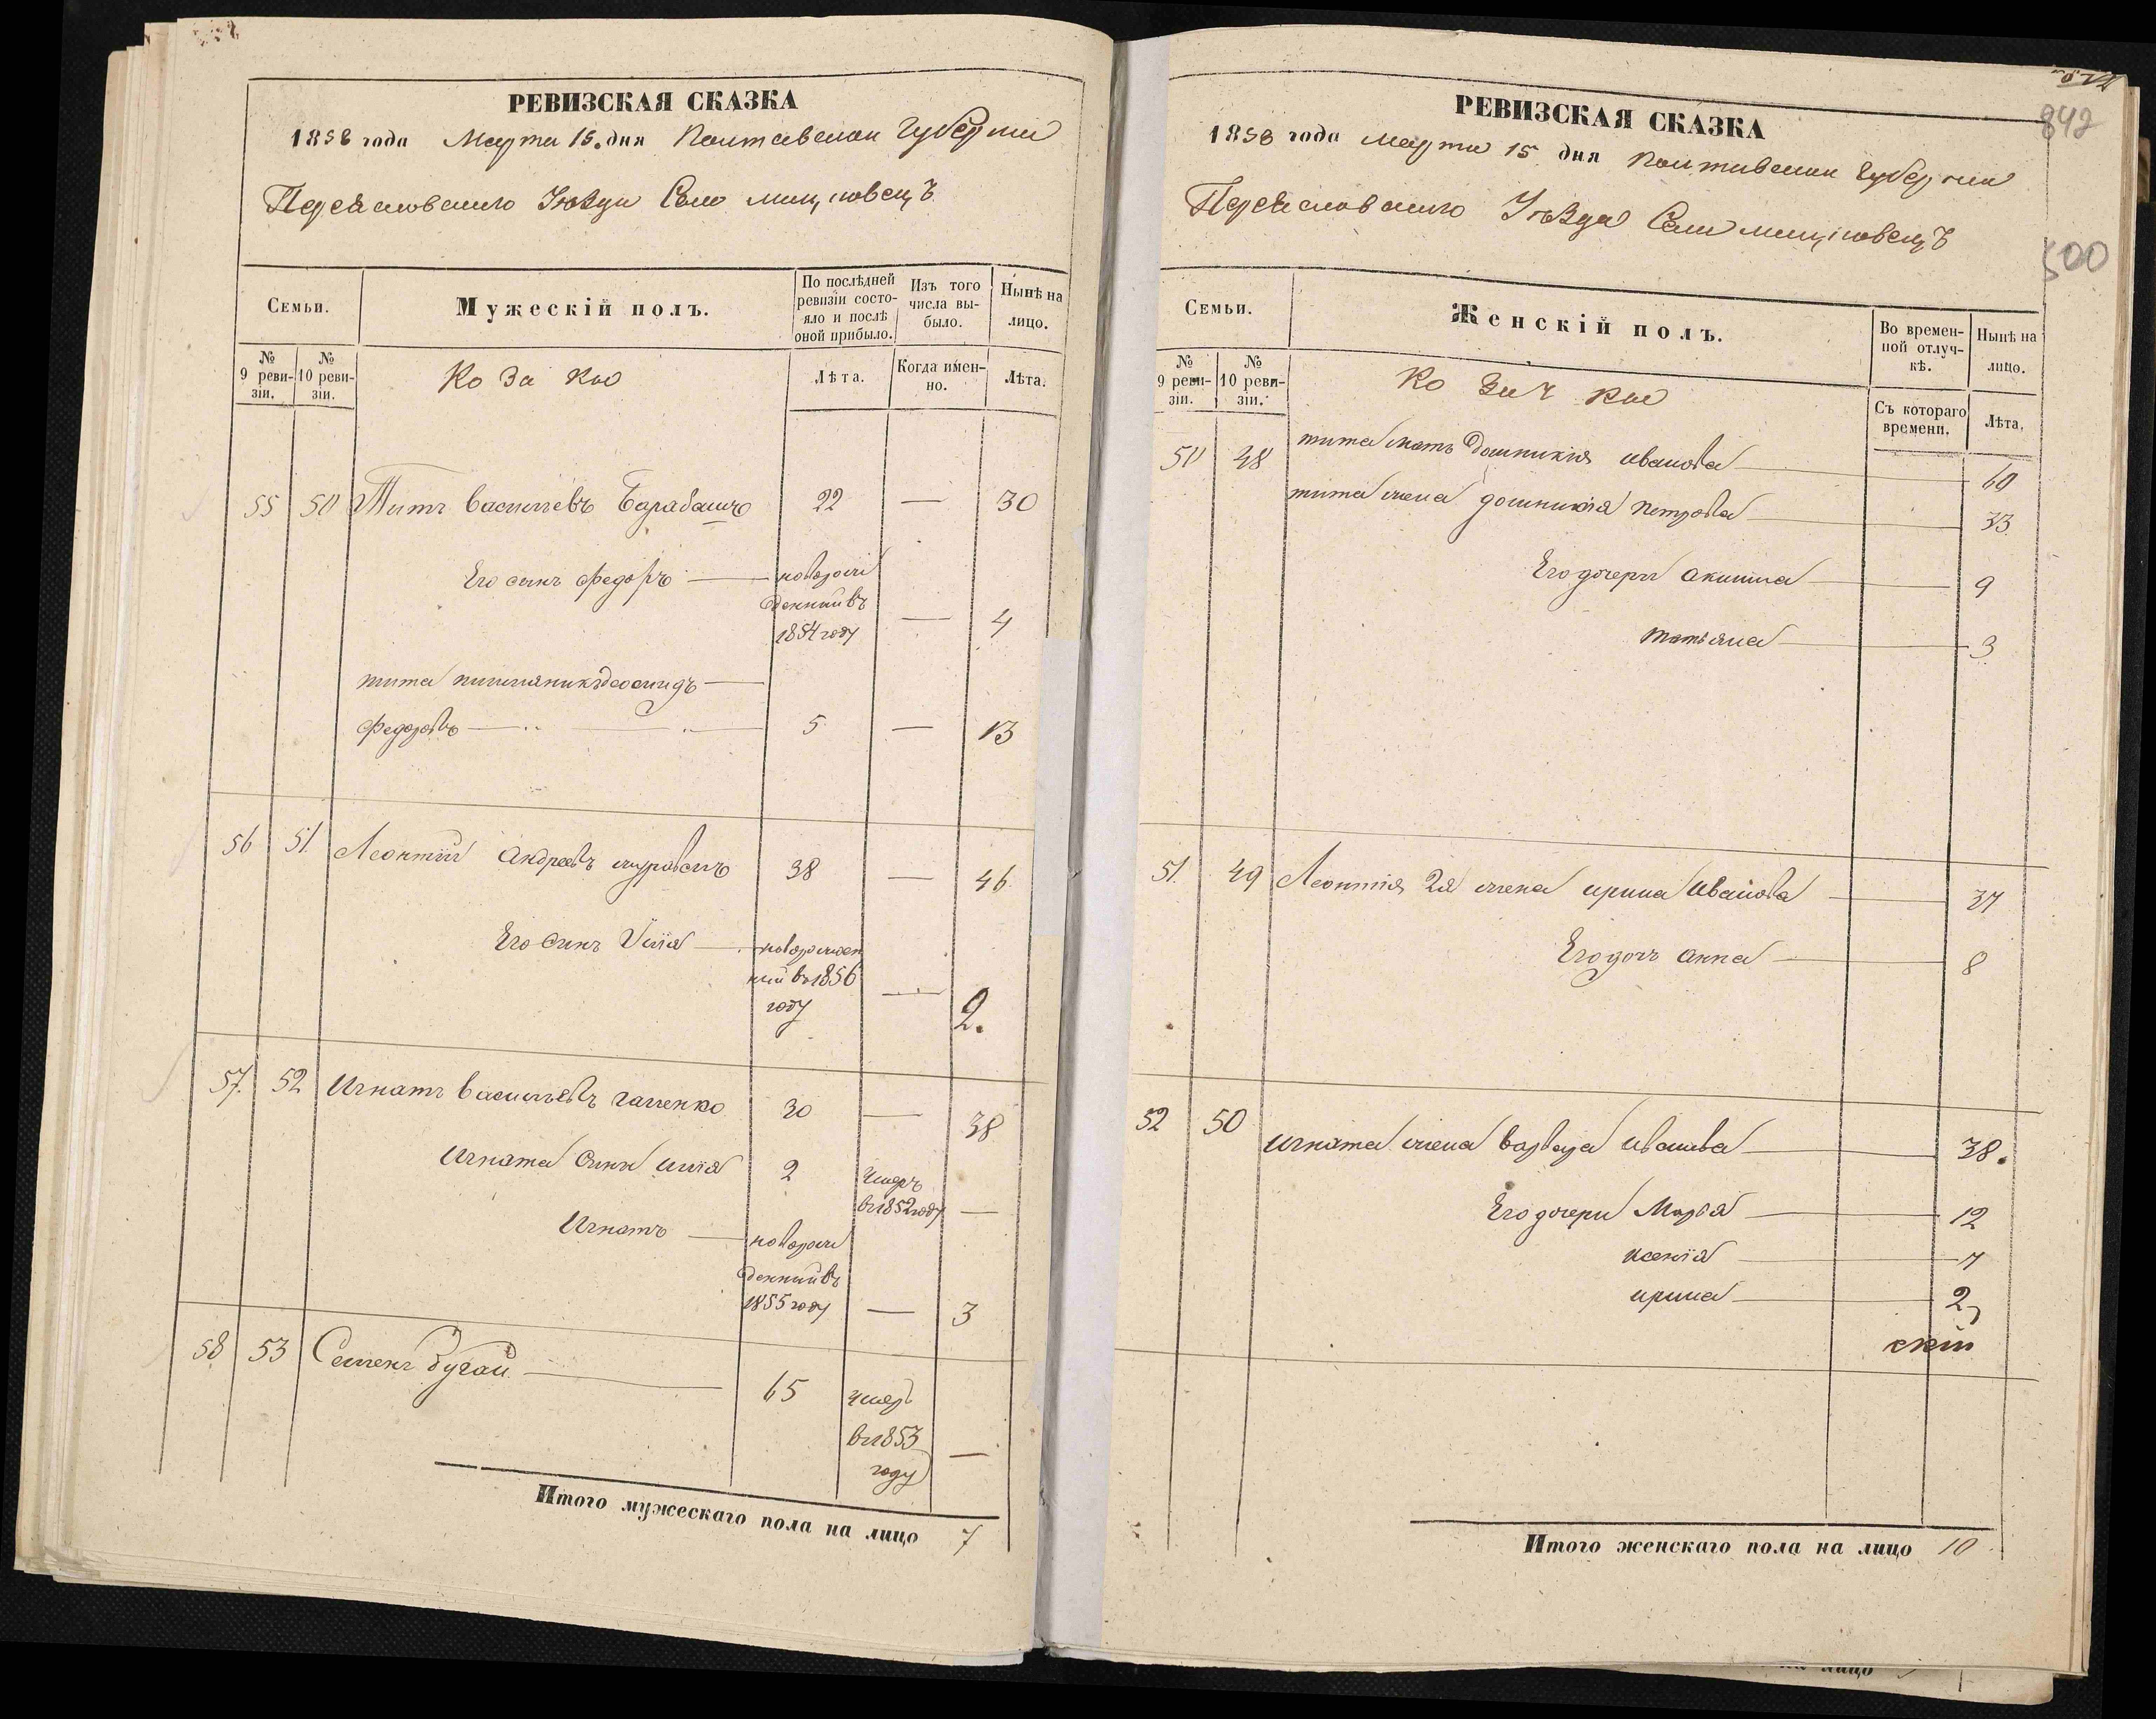 РЕВИЗСКАЯ СКАЗКА
1858 года Марта 15. дня Полтавской Губерни
Переясловского Уѣзда Село
Семьи.
Мужескій полъ.
По послѣдней ревизіи состояло и послѣ оной прибыло.
Изъ того числа выбыло.
Нынѣ на лицо.
№ 9 ревизіи.
№ 10 ревизіи.
Козаки
Лѣта.
Когда именно.
Лѣта.
55 50 Титъ Васильевъ Барабашъ 22 — 30
Его сынъ Федоръ — новорожденный въ 1854 году — 4
тита
Федоровъ — 5 — 13
56 51. Леонтий Андреевъ 38 — 46
Его сынъ Илія — новорожденний въ 1856 году — 2.
57. 52 Игнатъ Васильевъ 30 — 38
Игната синъ илія 2 умеръ въ 1852 году —
Игнатъ — новорожденний въ 1855 году — 3
58 53 Семенъ Бугай — 65 умеръ въ 1853 году —
Итого мужескаго пола на лицо 7
842
500
РЕВИЗСКАЯ СКАЗКА
1858 года марта 15 дня Полтавской Губернии
Переясловского Уѣзда Села
Семьи.
Женскій полъ.
Во временной отлучкѣ.
Нынѣ на лицо.
№ 9 ревизіи.
№ 10 ревизіи.
Козачки
Съ котораго времени.
Лѣта.
50 48 тита мать Домникия иванова — 60
тита жена домникія петрова — 33
Его дочери акилина — 9
татьяна — 3
51. 49 Леонтія 2я жена ирина Иванова — 37
Его дочь анна — 8
52 50 игната жена варвара иванова — 38.
Его дочери Марія — 12
ксенія — 7
ирина — 2
Итого женскаго пола на лицо 10